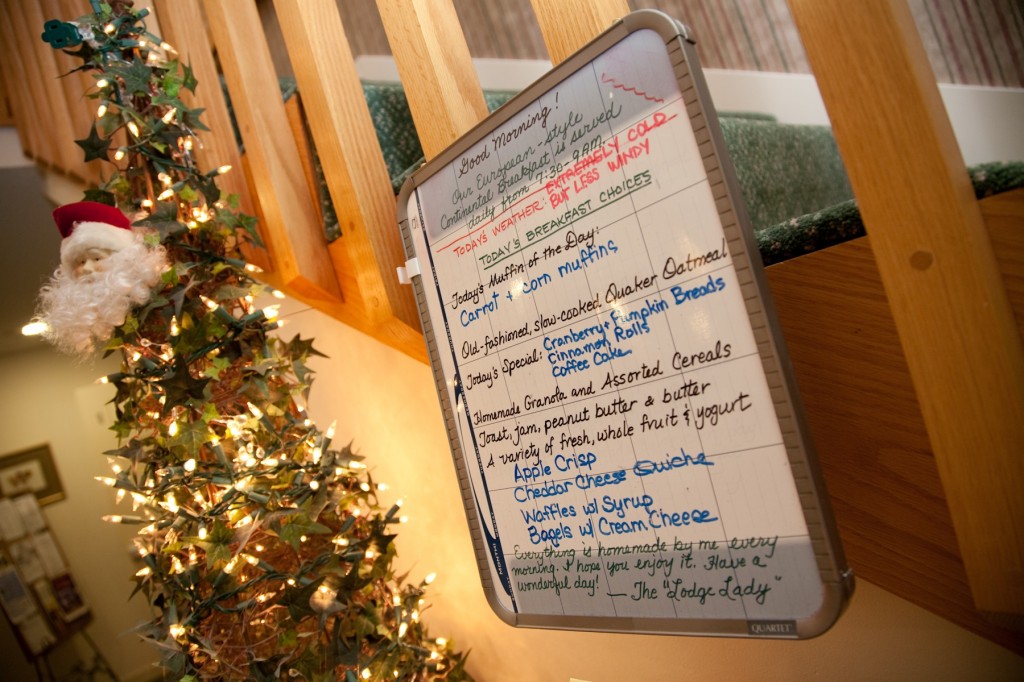 Good Morning!
Our European-style
Continental Breakfast is served
daily from 7:30-9AM.
TODAY'S WEATHER: EXTREMELY COLD
BUT LESS WINDY
TODAY'S BREAKFAST CHOICES
Today's Muffin of the Day:
Carrot + corn muffins
Old-fashioned, slow-cooked, Quaker Oatmeal
Today's Special: Cranberry + Pumpkin Breads
Cinnamon Rolls
Coffee Cake
Homemade Granola and Assorted Cereals
Toast, jam, peanut butter & butter
A variety of fresh, whole fruit & yogurt
Apple Crisp
Cheddar Cheese Quiche
Waffles w/ Syrup
Bagels w/ Cream Cheese
Everything is homemade by me every
morning. I hope you enjoy it. Have a
wonderful day! — The "Lodge Lady"
QUARTET